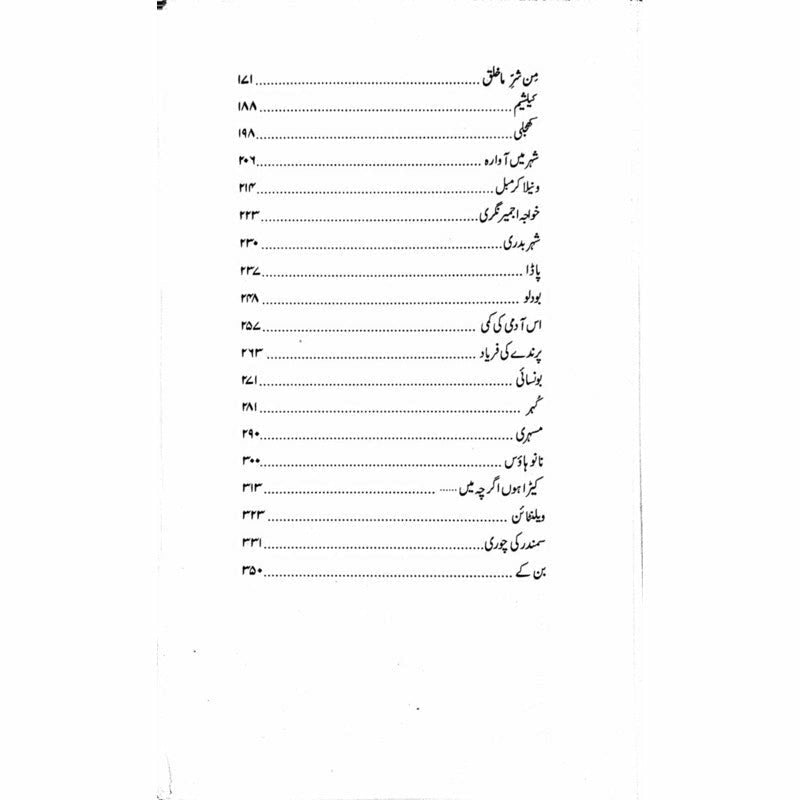 مِن شرِّ ماخلق ........ ۱۷۱
کیلشیم ........ ۱۸۸
کھجلی ........ ۱۹۸
شہر میں آوارہ ........ ۲۰۶
ونیلا کرمبل ........ ۲۱۴
خواجہ اجمیر نگری ........ ۲۲۳
شہر بدری ........ ۲۳۰
پاڈا ........ ۲۳۷
بودلو ........ ۲۴۸
اس آدمی کی کمی ........ ۲۵۷
پرندے کی فریاد ........ ۲۶۳
بونسائی ........ ۲۷۱
گہر ........ ۲۸۱
مسہری ........ ۲۹۰
نانو ہاؤس ........ ۳۰۰
کیڑا ہوں اگرچہ میں ...... ........ ۳۱۳
ویلنٹائن ........ ۳۲۳
سمندر کی چوری ........ ۳۳۱
بن کے ........ ۳۵۰